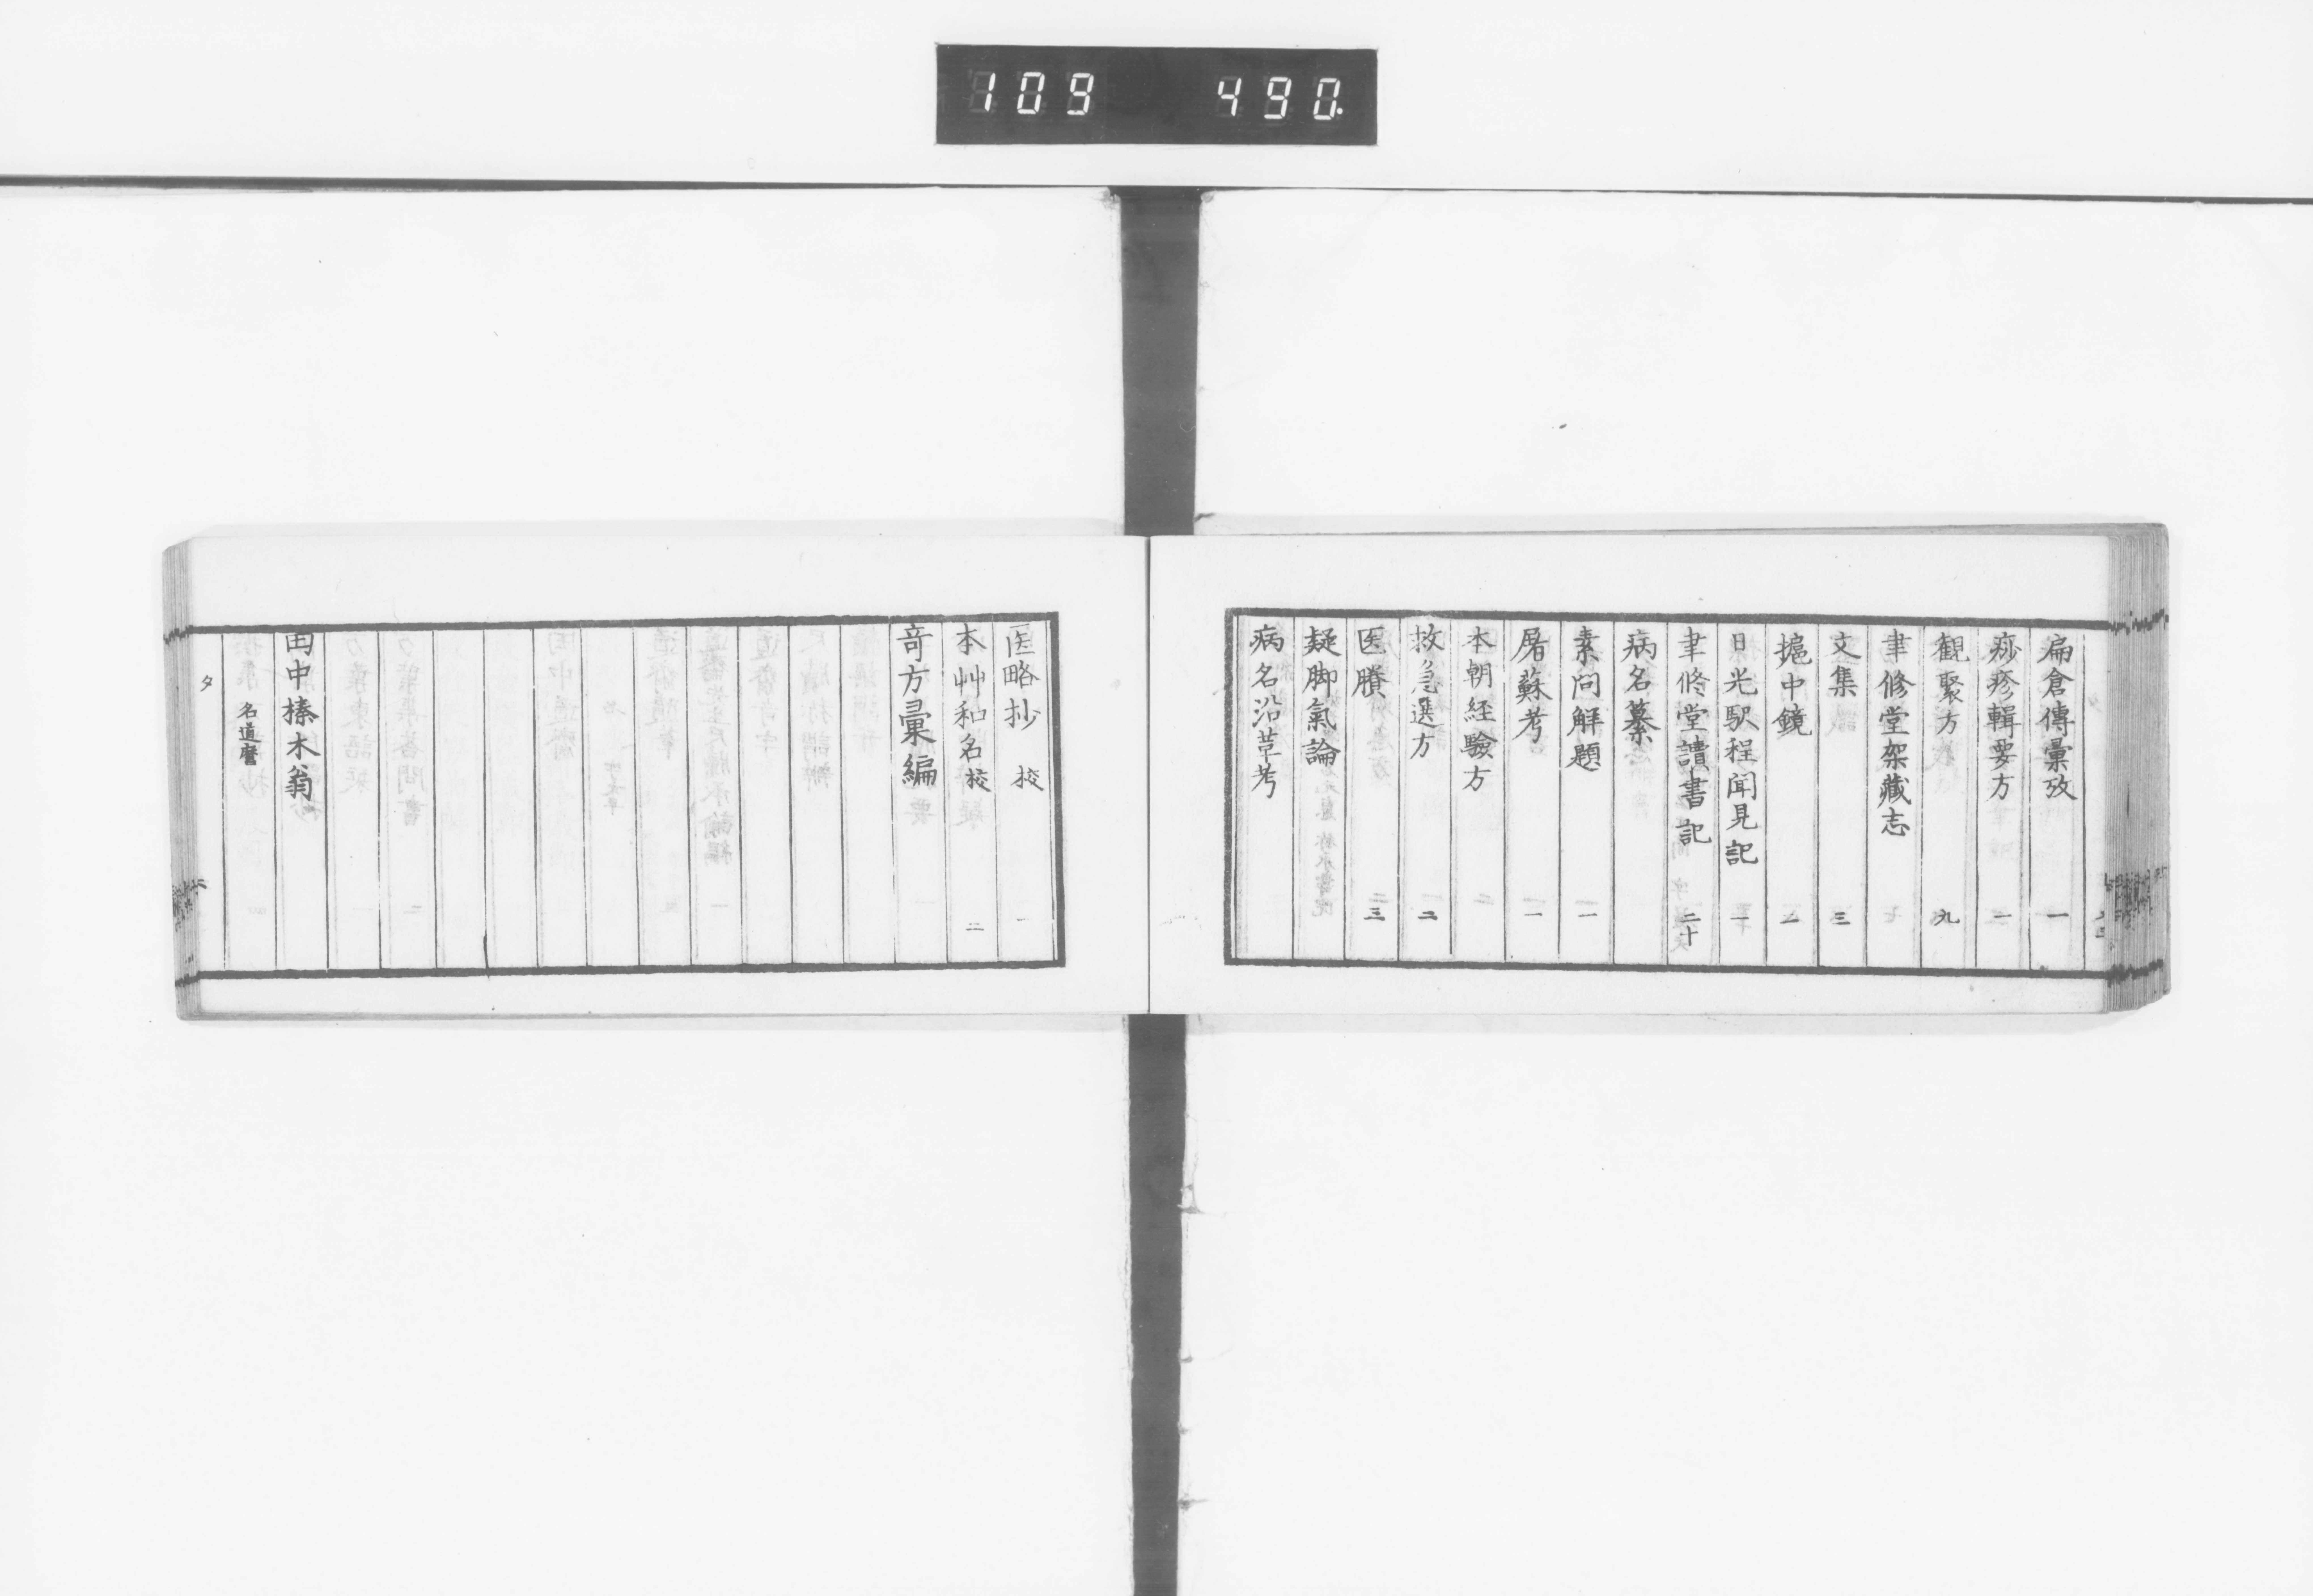 109 490
扁倉傳彙攷 一
痧疹輯要方 一
観聚方 九
聿修堂架藏志
文集 三
摳中鏡 一
日光駅程聞見記 一
聿修堂讀書記 二十
病名纂
素問解題 一
屠蘇考 一
本朝経驗方
救急選方 二
医賸 三
疑脚氣論
病名沿革考
医略抄 校 一
本艸和名 校 二
竒方彙編
田中榛木翁
名道麿
タ